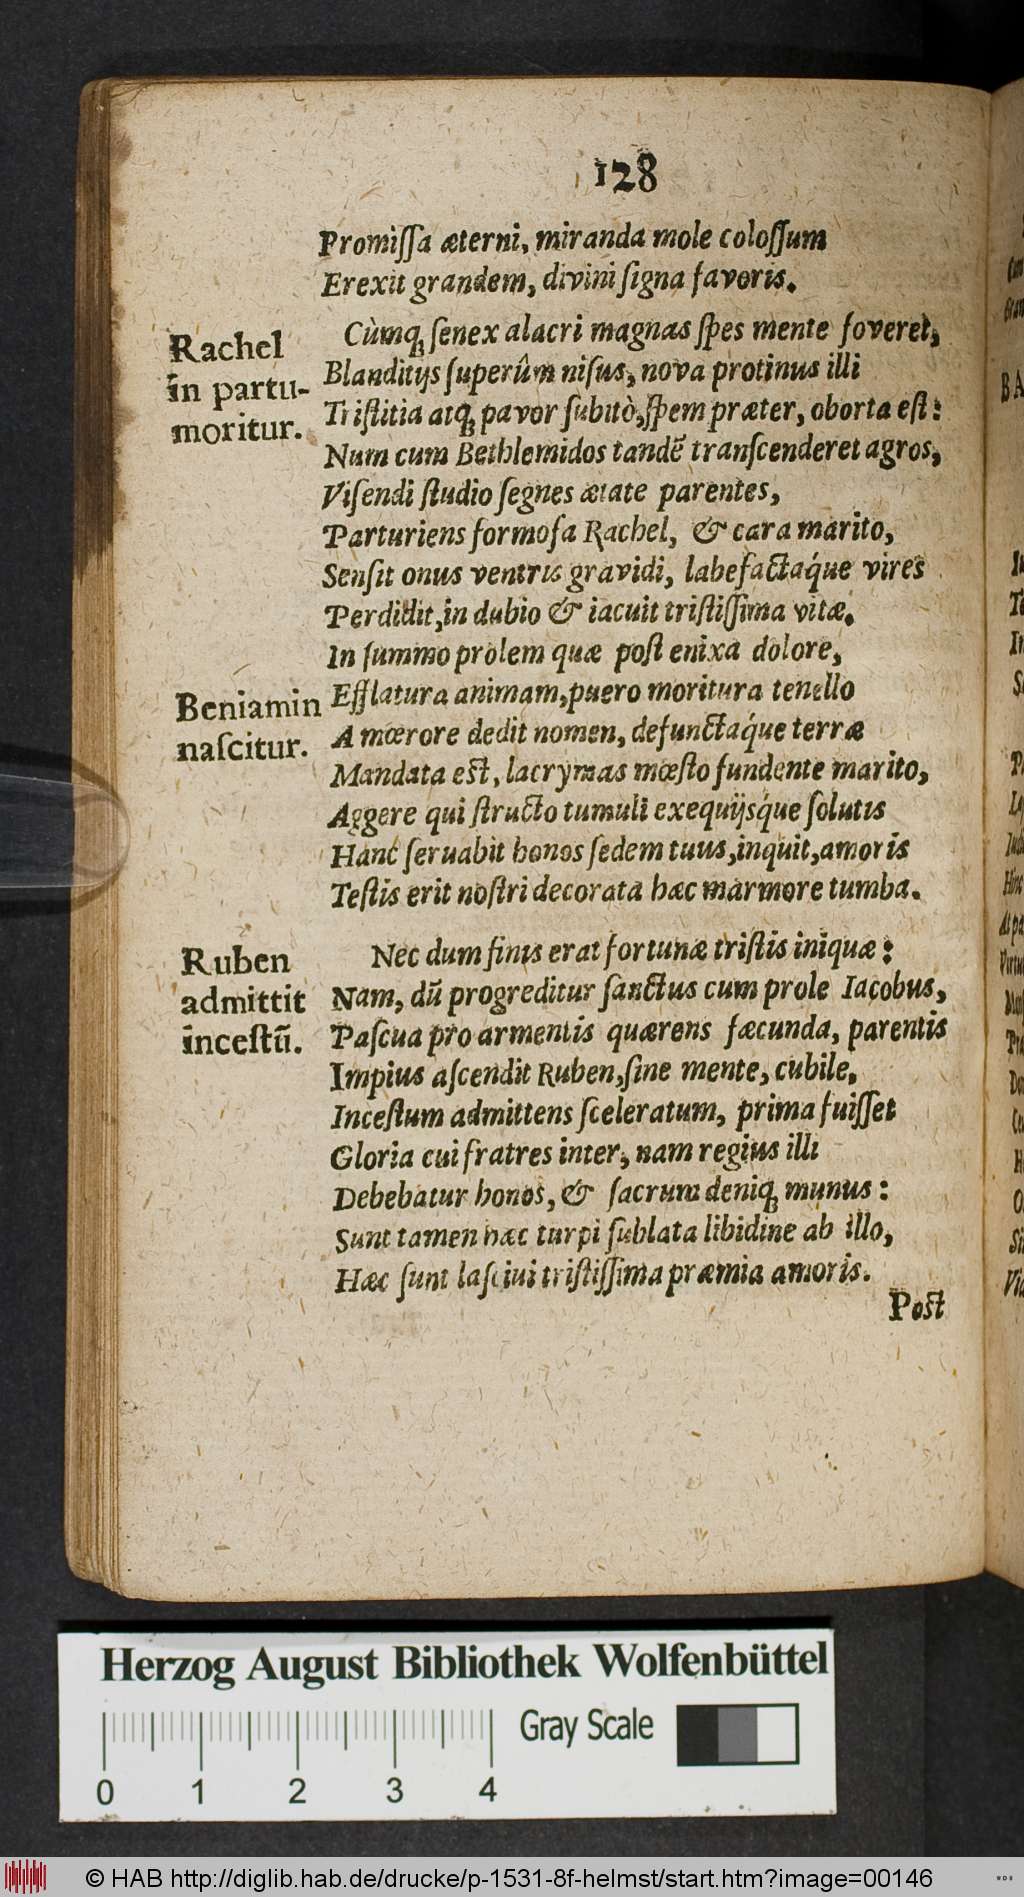 128
Promiſſa æterni, miranda mole coloſſum
Erexit grandem, divini ſigna favoris.
Rachel
in partu-
moritur.
Cùmq́ ſenex alacri magnas ſpes mente foveret,
Blanditijs ſuperûm niſus, nova protinus illi
Triſtitia atq́, pavor ſubitò, ſpem præter, oborta eſt:
Num cum Bethlemidos tandẽ tranſcenderet agros,
Viſendi ſtudio ſegnes ætate parentes,
Parturiens formoſa Rachel, & cara marito,
Senſit onus ventris gravidi, labefactaq́ue vires
Perdidit, in dubio & iacuit triſtiſſima vitæ.
In ſummo prolem quæ poſt enixa dolore,
Beniamin
naſcitur.
Efflatura animam, puero moritura tenello
A mœrore dedit nomen, defunctaq́ue terræ
Mandata est, lacrymas mœſto fundente marito,
Aggere qui ſtructo tumuli exequijsq́ue ſolutis
Hanc ſeruabit honos ſedem tuus, inquit, amoris
Teſtis erit noſtri decorata hæc marmore tumba.
Ruben
admittit
inceſtũ.
Nec dum finis erat fortunæ triſtis iniquæ:
Nam, dũ progreditur ſanctus cum prole Iacobus,
Paſcua pro armentis quærens fæcunda, parentis
Impius aſcendit Ruben, ſine mente, cubile,
Inceſtum admittens ſceleratum, prima fuiſſet
Gloria cui fratres inter, nam regius illi
Debebatur honos, & ſacrum deniq́ munus:
Sunt tamen hæc turpi ſublata libidine ab illo,
Hæc ſunt laſcivi triſtiſſima præmia amoris.
Post
Herzog August Bibliothek Wolfenbüttel
Gray Scale
0 1 2 3 4
© HAB http://diglib.hab.de/drucke/p-1531-8f-helmst/start.htm?image=00146